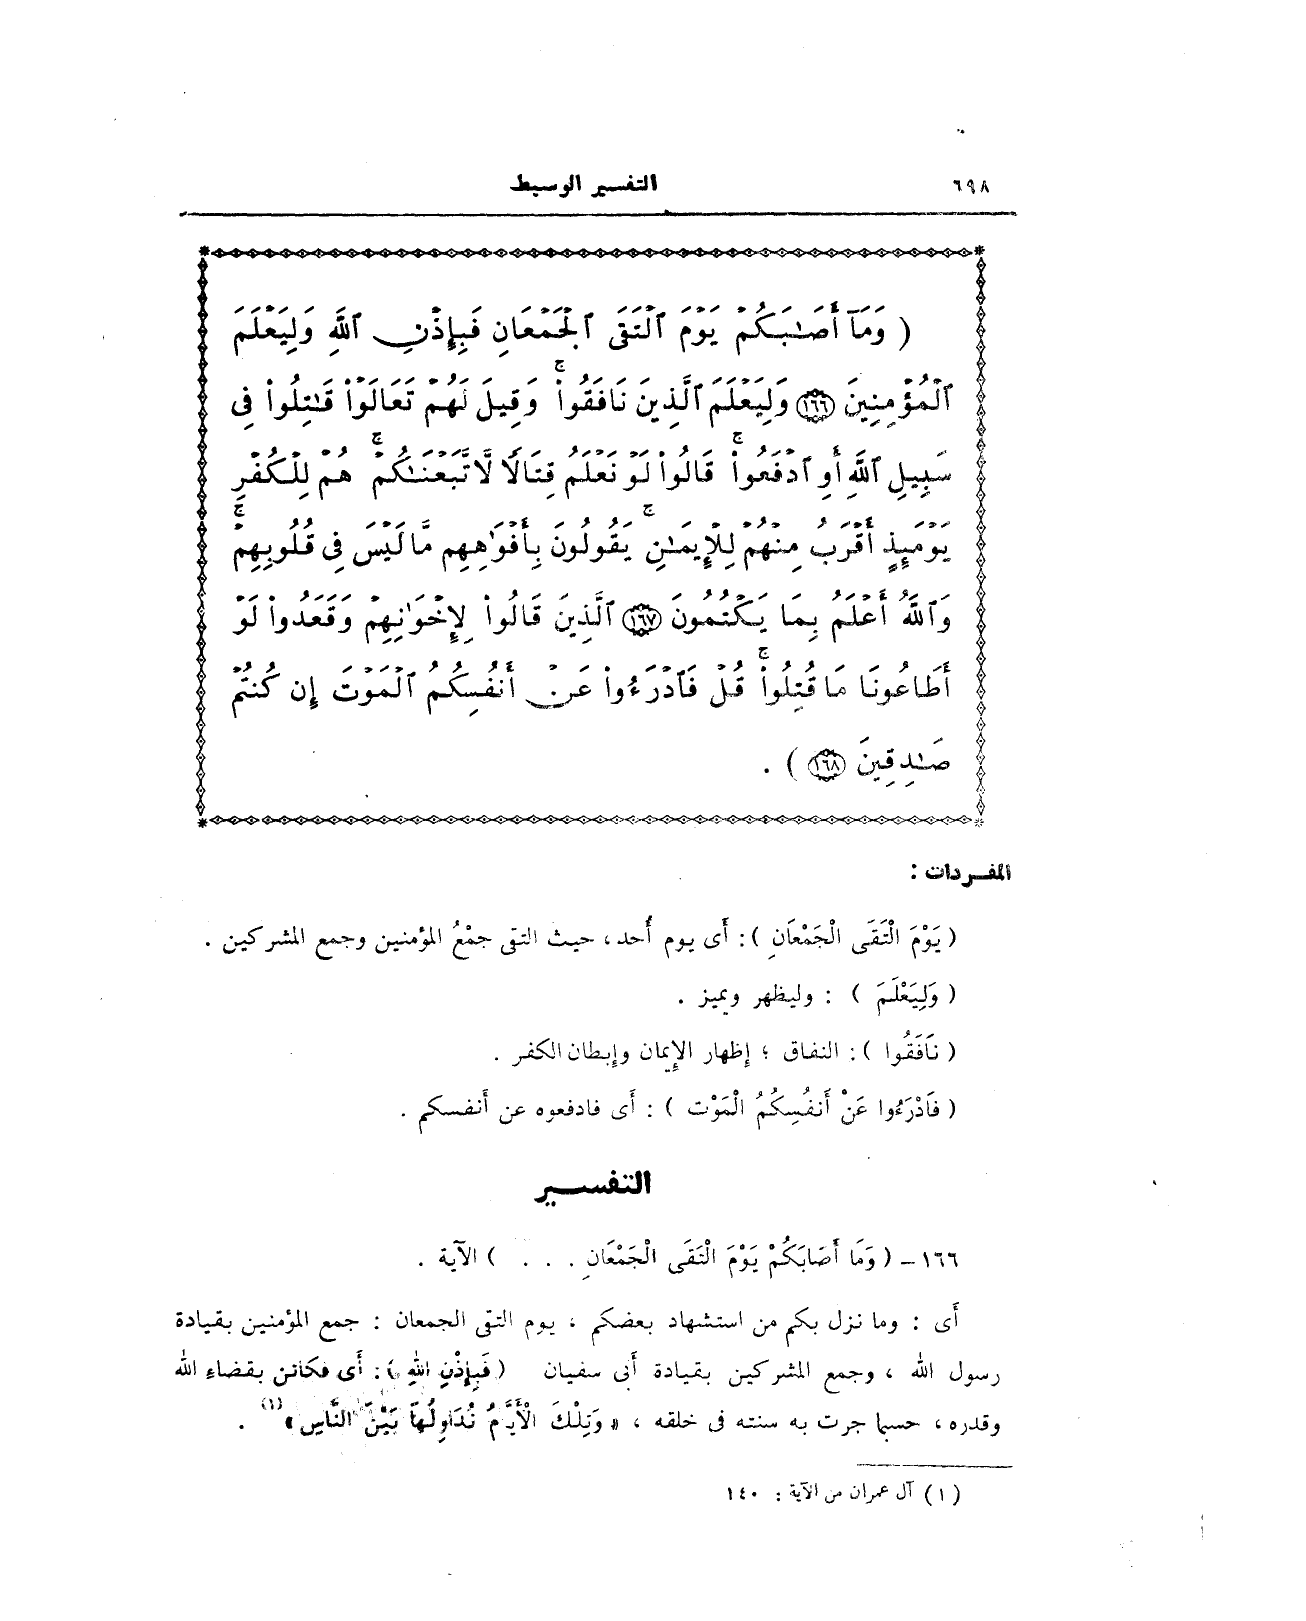 ٦٩٨
التفسير الوسيط
( وَمَآ أَصَٰبَكُمْ يَوْمَ ٱلْتَقَى ٱلْجَمْعَانِ فَبِإِذْنِ ٱللَّهِ وَلِيَعْلَمَ
ٱلْمُؤْمِنِينَ ١٦٦ وَلِيَعْلَمَ ٱلَّذِينَ نَافَقُوا۟ ۚ وَقِيلَ لَهُمْ تَعَالَوْا۟ قَٰتِلُوا۟ فِى
سَبِيلِ ٱللَّهِ أَوِ ٱدْفَعُوا۟ ۚ قَالُوا۟ لَوْ نَعْلَمُ قِتَالًا لَّٱتَّبَعْنَٰكُمْ ۚ هُمْ لِلْكُفْرِ
يَوْمَئِذٍ أَقْرَبُ مِنْهُمْ لِلْإِيمَٰنِ ۚ يَقُولُونَ بِأَفْوَٰهِهِم مَّا لَيْسَ فِى قُلُوبِهِمْ ۚ
وَٱللَّهُ أَعْلَمُ بِمَا يَكْتُمُونَ ١٦٧ ٱلَّذِينَ قَالُوا۟ لِإِخْوَٰنِهِمْ وَقَعَدُوا۟ لَوْ
أَطَاعُونَا مَا قُتِلُوا۟ ۚ قُلْ فَٱدْرَءُوا۟ عَنْ أَنفُسِكُمُ ٱلْمَوْتَ إِن كُنتُمْ
صَٰدِقِينَ ١٦٨ ) .
المفـردات :
( يَوْمَ الْتَقَى الْجَمْعَانِ ) : أى يوم أُحد، حيث التقى جمْعُ المؤمنين وجمع المشركين .
( وَلِيَعْلَمَ ) : وليظهر ويميز .
( نَافَقُوا ) : النفاق ؛ إظهار الإيمان وإبطان الكفر .
( فَادْرَءُوا عَنْ أَنفُسِكُمُ الْمَوْتَ ) : أى فادفعوه عن أنفسكم .
التفســير
١٦٦ – ( وَمَا أَصَابَكُمْ يَوْمَ الْتَقَى الْجَمْعَانِ . . . ) الآية .
أى : وما نزل بكم من استشهاد بعضكم ، يوم التقى الجمعان : جمع المؤمنين بقيادة
رسول الله ، وجمع المشركين بقيادة أبى سفيان ( فَبِإِذْنِ اللهِ ) : أى فكائن بقضاءِ الله
وقدره، حسبما جرت به سنته فى خلقه ، « وَتِلْكَ الْأَيَّامُ نُدَاوِلُهَا بَيْنَ النَّاسِ » (١) .
(١) آل عمران من الآية : ١٤٠